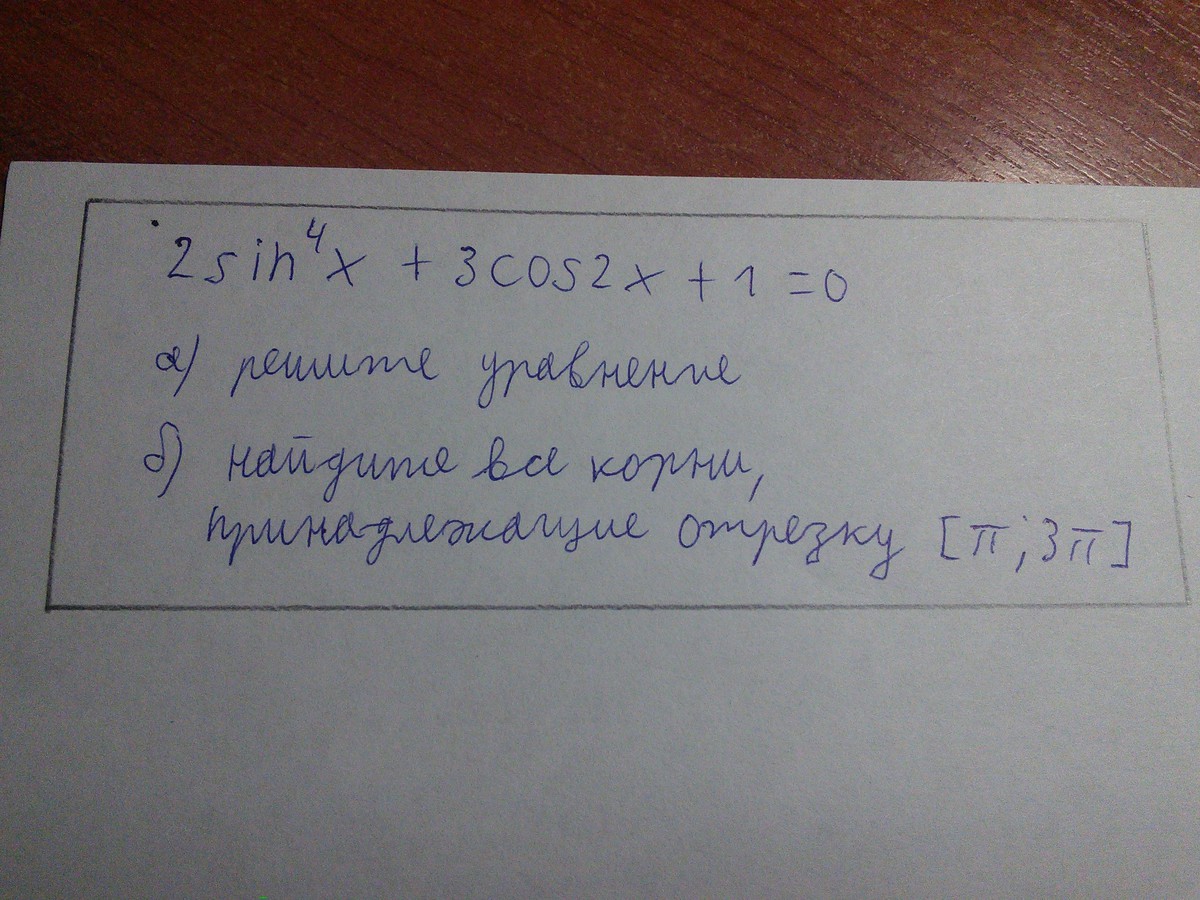 2sin⁴x + 3cos2x + 1 = 0
а) решите уравнение
б) найдите все корни,
принадлежащие отрезку [π; 3π]